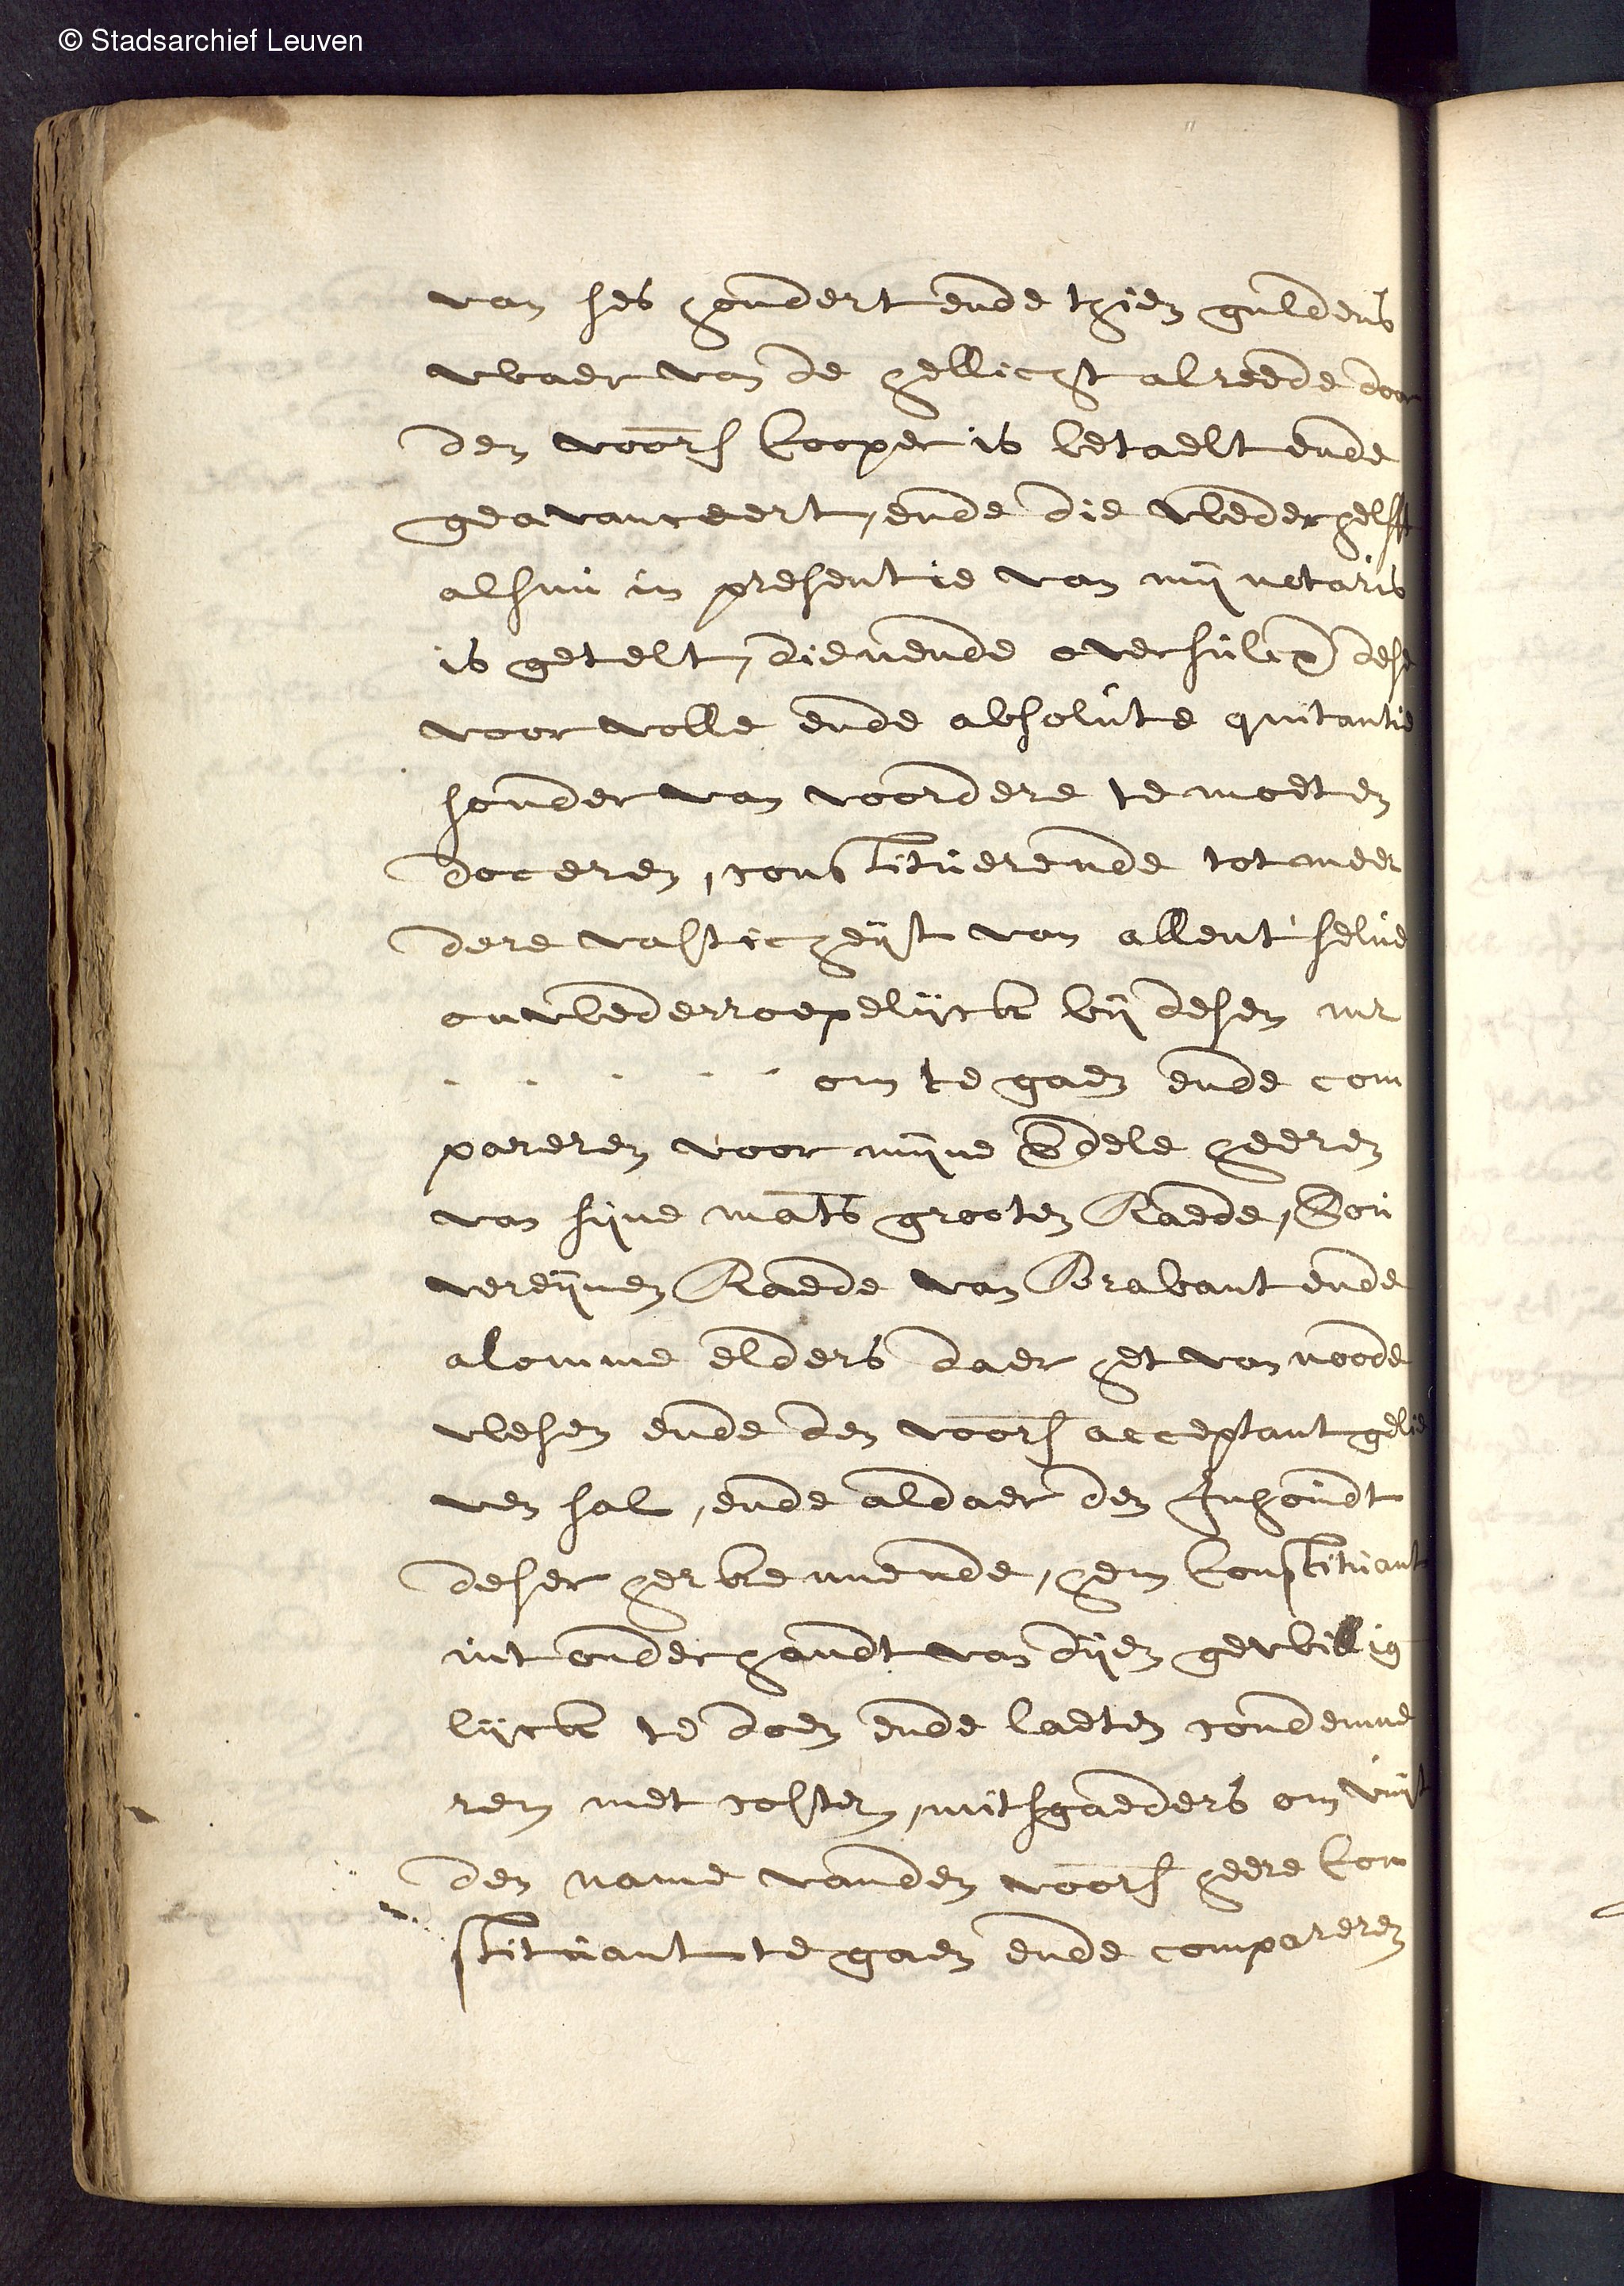 © Stadsarchief Leuven
van ses hondert ende thien guldens
waer van de hellicht alreede door
den voors kooper is betaelt ende
geavanceert, ende die wederhelfft
alsnu in presentie van mij notaris
is getelt, dienende oversulcx dese
voor volle ende absolute quitantie
sonder van voordere te moeten
doceren, constituerende tot meer
dere vasticheijt van allent' selve
onwederroepelijck bij desen mr
. . . . . om te gaen ende com
pareren voor mijne Edele heeren
van sijne mats grooten Raede, Sou
vereijnen Raede van Brabant ende
alomme elders daer het van noode
wesen ende den voors acceptant gelie
ven sal, ende aldaer den Inhoudt
deser herkennende, hem Constituant
int onderhaudt van dijen gewillig
lijck te doen ende laeten condemne
ren met costen, mitsgaeders om vuijt
den name vanden voors heere Con
stituant te gaen ende compareren